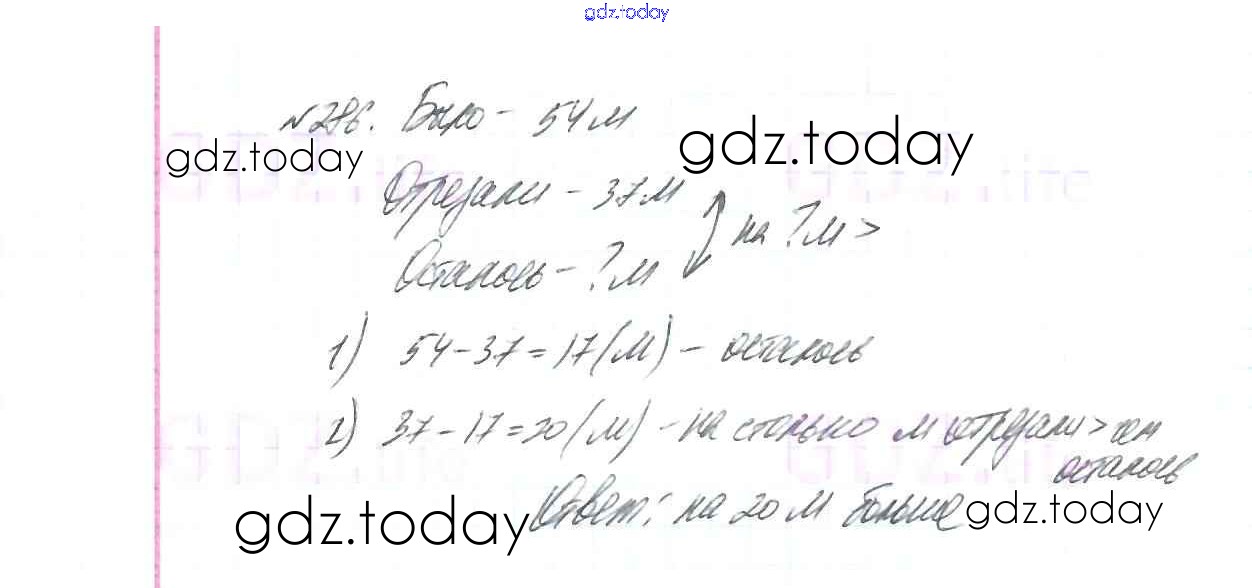 gdz.today
№286. Было - 54 м
gdz.today
gdz.today
Отрезали - 37 м
на ? м >
Осталось - ? м
1) 54-37=17(м) - осталось
2) 37-17=20(м) - на столько м отрезали > чем
осталось
Ответ: на 20 м больше
gdz.today
gdz.today